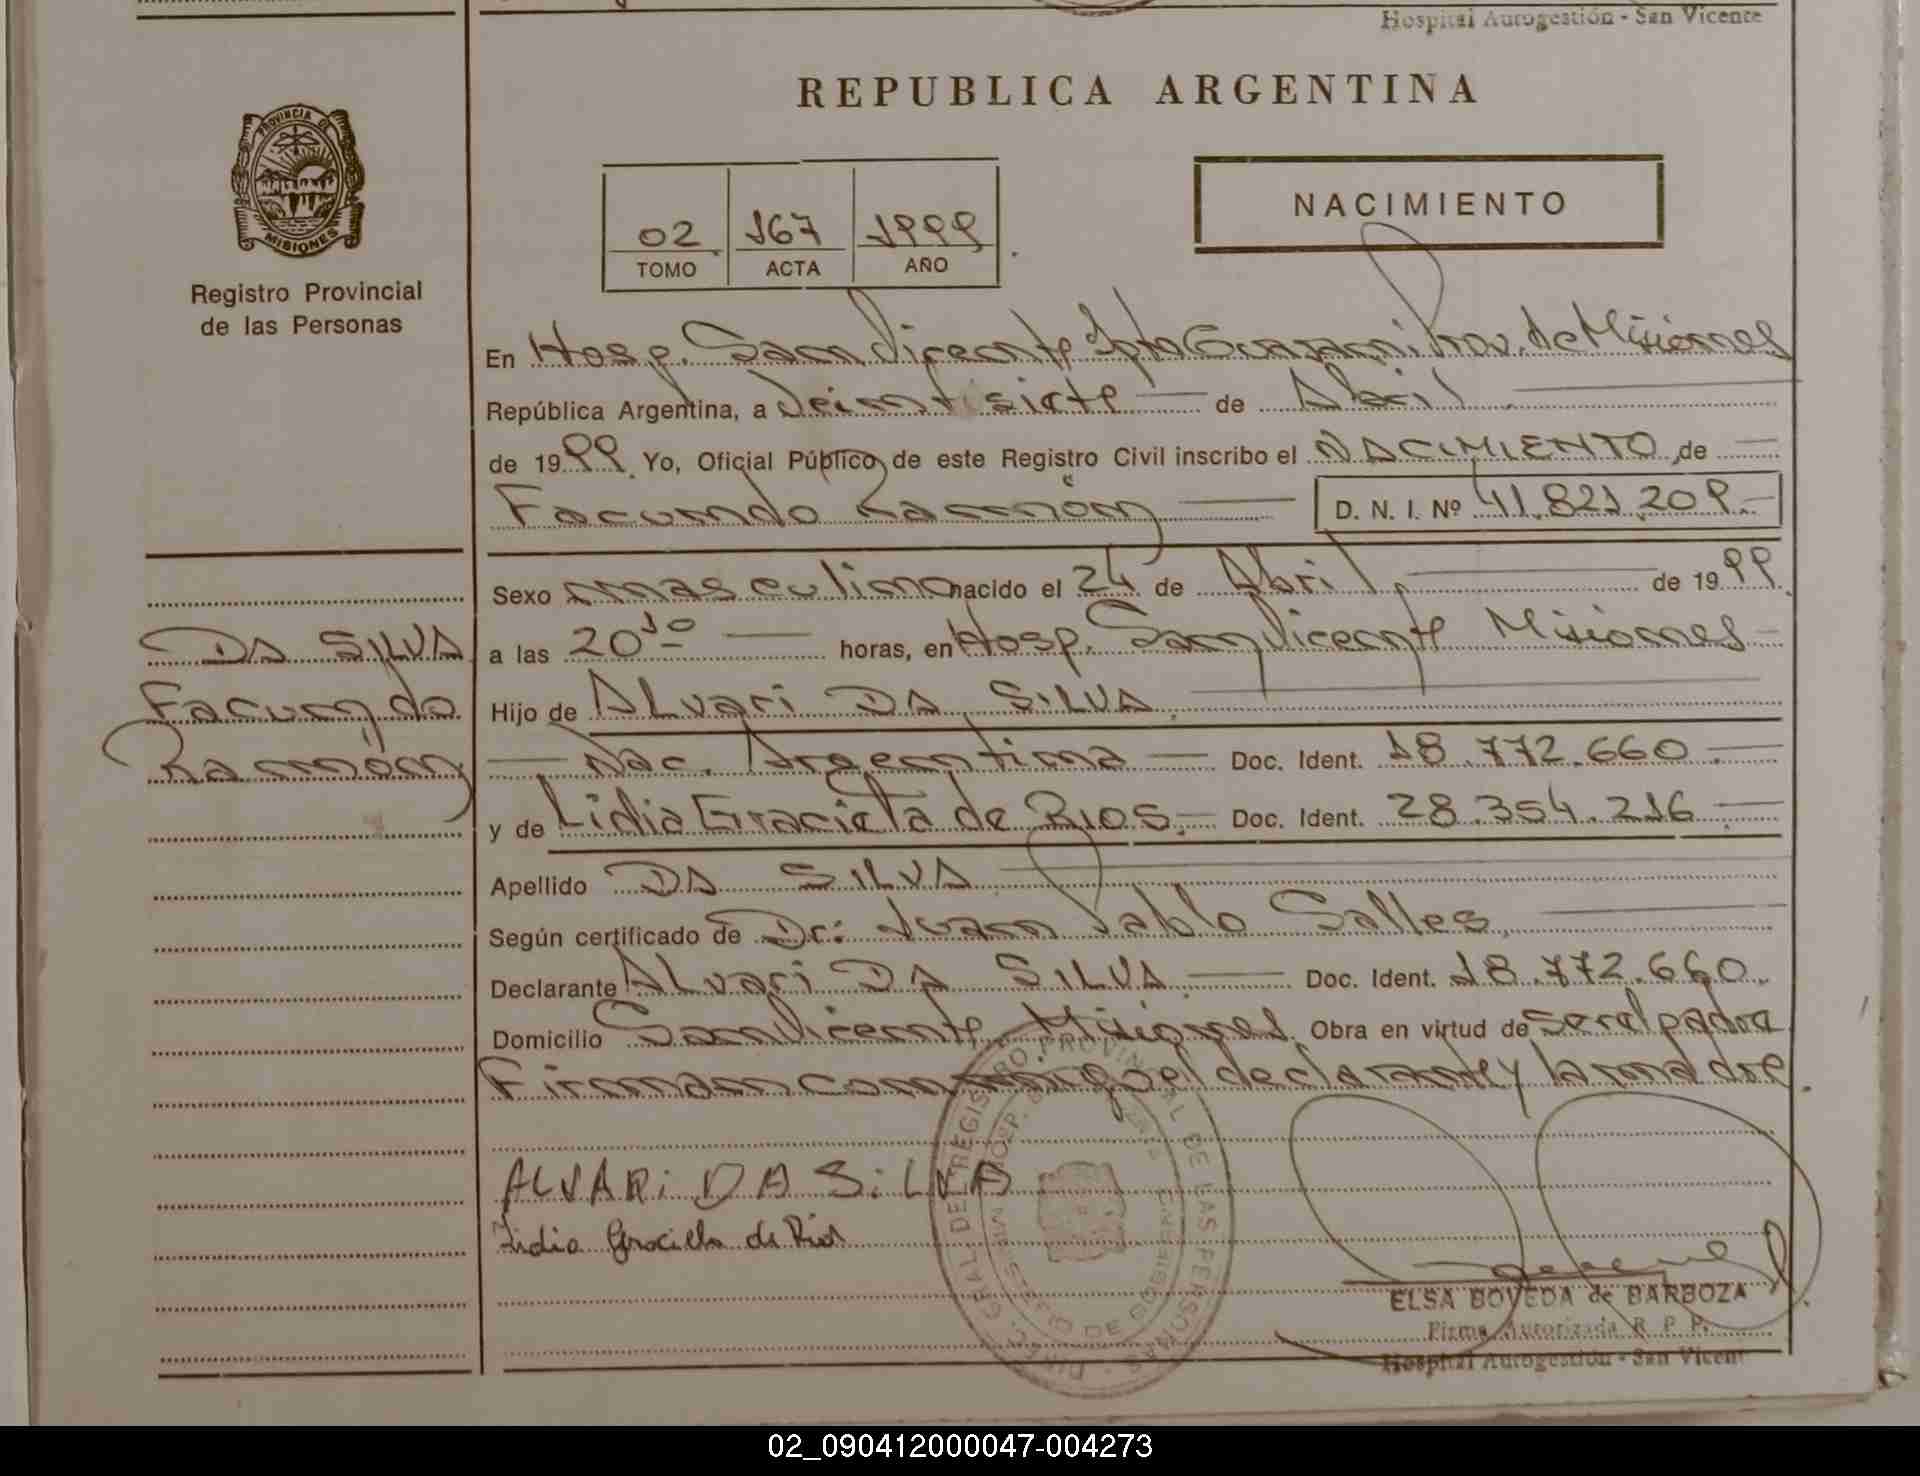 Hospital Autogestión - San Vicente
REPUBLICA ARGENTINA
PROVINCIA DE
MISIONES
Registro Provincial
de las Personas
02 167 1999
TOMO ACTA AÑO
NACIMIENTO
En Hosp. San Vicente Dpto Guaraní Prov. de Misiones
República Argentina, a Veintisiete de Abril
de 1999. Yo, Oficial Público de este Registro Civil inscribo el NACIMIENTO de
Facundo Ramón D. N. I. Nº 41.821.209
Sexo masculino nacido el 24 de Abril de 1999
a las 20 10 horas, en Hosp. San Vicente Misiones
Hijo de ALvari DA SILVA
Nac. Argentina Doc. Ident. 18.772.660
y de Lidia Graciela de Rios. Doc. Ident. 28.354.216
Apellido DA SILVA
Según certificado de Dr: Juan Pablo Salles
Declarante ALvari DA SILVA Doc. Ident. 18.772.660
Domicilio San Vicente, Misiones. Obra en virtud de ser el padre
Firman conmigo el declarante y la madre.
DA SILVA
Facundo
Ramón
ALVARi DA SiLVA
Lidia Graciela de Rios
DIREC. GRAL. DEL REGISTRO PROVINCIAL DE LAS PERSONAS
ELSA BOVEDA de BARBOZA
Firma Autorizada R. P. P.
Hospital Autogestión - San Vicent
02_090412000047-004273